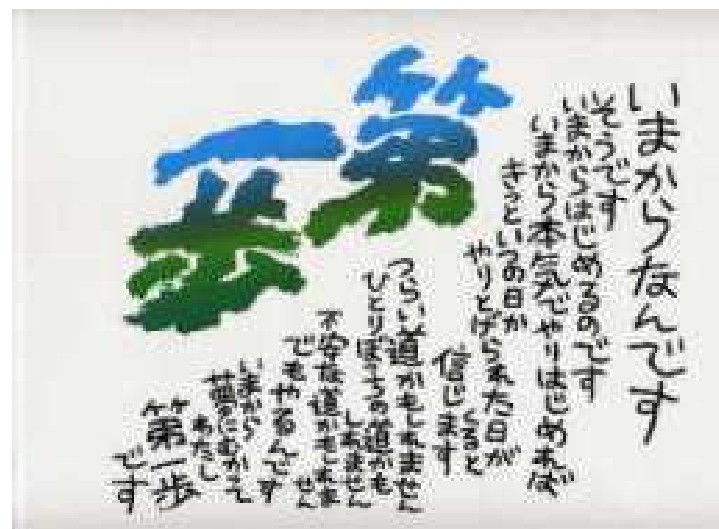 第一歩
いまからなんです
そうです
いまからはじめてるのです
いまから本気でやりはじめれば
きっといつの日か
やりとげられた日が
くると
信じます
つらい道かもしれません
ひとりぼっちの道かも
しれません
不安な道かもしれま
せん
でもやるんです
いまから
夢にむかって
わたし
第一歩
です